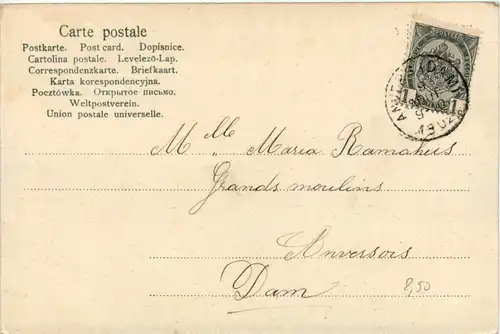 Carte postale
Postkarte. Post card. Dopisnice.
Cartolina postale. Levelező-Lap.
Correspondenzkarte. Briefkaart.
Karta korespondencyjna.
Pocztówka. Открытое письмо.
Weltpostverein.
Union postale universelle.
M lle Maria Ramakers
Grands moulins
Anversois
Dam
8,50